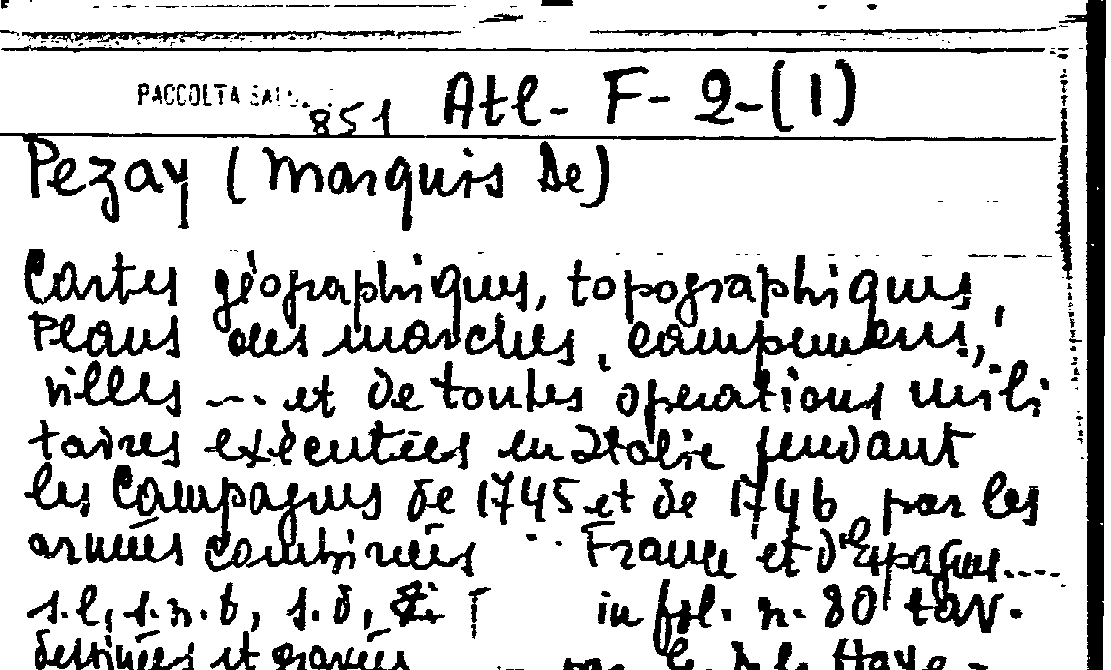 RACCOLTA
851 Atl- F- 2-(1)
Pezay (Marquis De)
Cartes géographiques, topographiques,
Plans des marches, campements,
villes --- et de toutes opérations mili
taires exécutées en Italie pendant
les Campagnes de 1745 et de 1746 par les
armées combinées France et d'Espagne....
s.l, s.n.t, s.d, in fol. n. 80 tav.
dessinées et gravées par G. De la Haye-